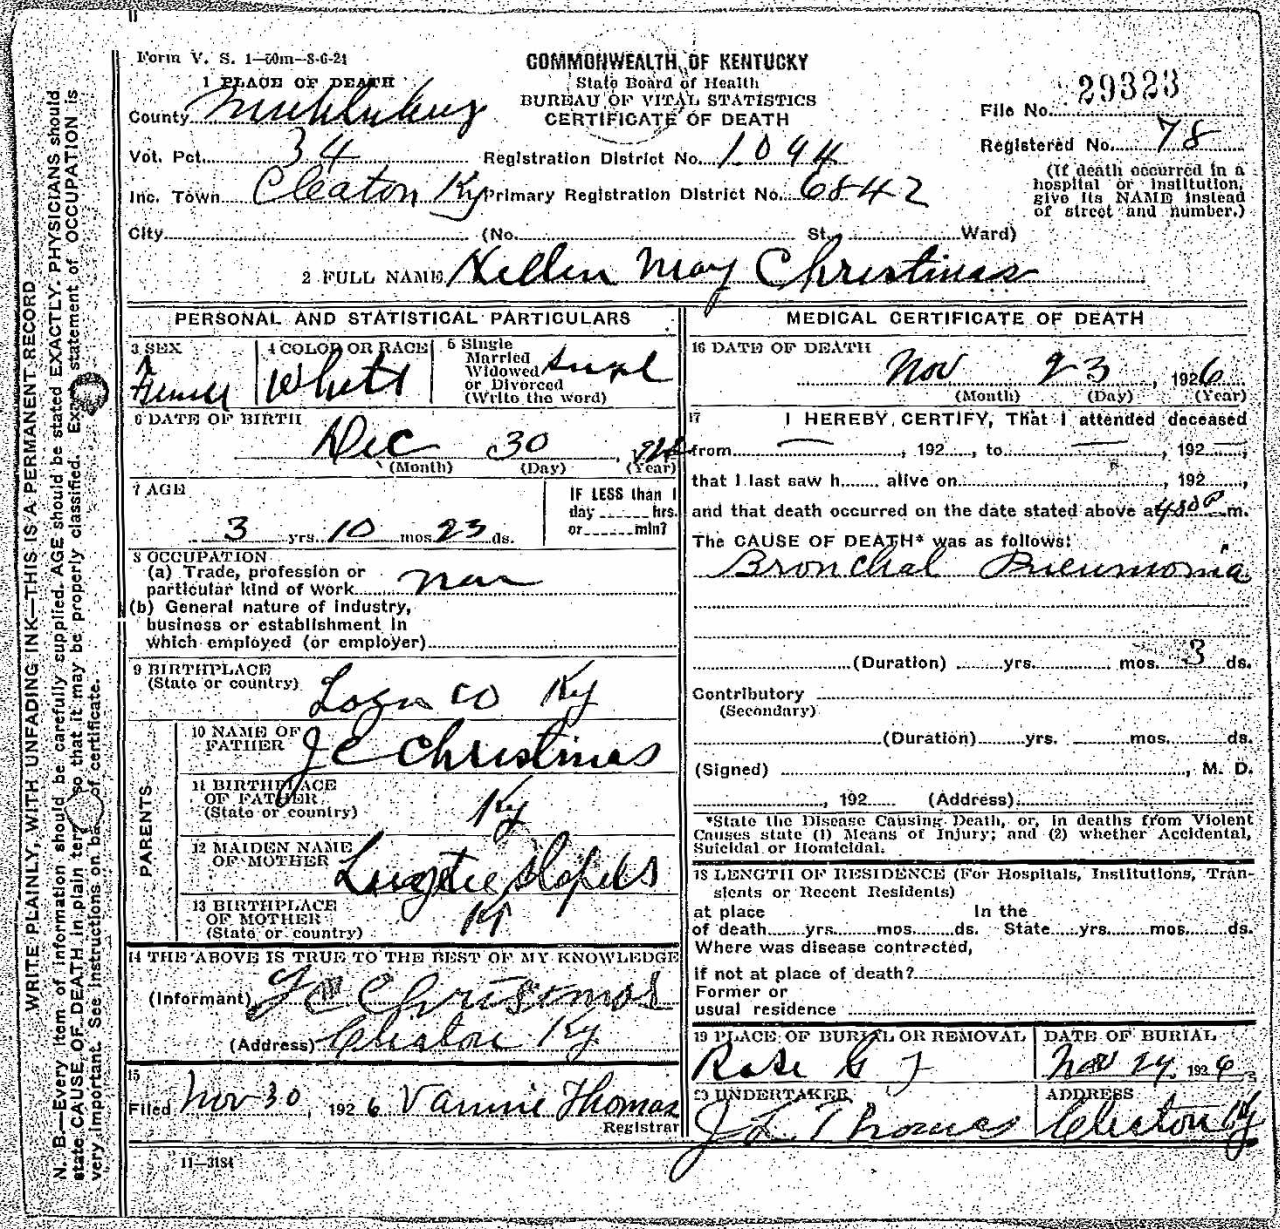 Form V. S. 1—50m—8-6-24
COMMONWEALTH OF KENTUCKY
State Board of Health
BUREAU OF VITAL STATISTICS
CERTIFICATE OF DEATH
1 PLACE OF DEATH
County
File No. 29323
Vot. Pct. 34 Registration District No. 1094
Registered No. 78
Inc. Town Cleaton Ky Primary Registration District No. 6842
(If death occurred in a
hospital or institution,
give its NAME instead
of street and number.)
City (No. St. Ward)
2 FULL NAME Hellen May Christmas
PERSONAL AND STATISTICAL PARTICULARS
3 SEX
4 COLOR OR RACE
White
5 Single
Married
Widowed
or Divorced
(Write the word)
6 DATE OF BIRTH
Dec 30
(Month) (Day) (Year)
7 AGE
3 yrs. 10 mos. 23 ds.
IF LESS than 1
day hrs.
or min?
8 OCCUPATION
(a) Trade, profession or
particular kind of work
(b) General nature of industry,
business or establishment in
which employed (or employer)
9 BIRTHPLACE
(State or country) Co Ky
PARENTS
10 NAME OF
FATHER J C Christmas
11 BIRTHPLACE
OF FATHER
(State or country) Ky
12 MAIDEN NAME
OF MOTHER
13 BIRTHPLACE
OF MOTHER
(State or country) Ky
14 THE ABOVE IS TRUE TO THE BEST OF MY KNOWLEDGE
(Informant) J C Christmas
(Address) Cleaton Ky
15
Filed Nov 30, 1926 Vannie Thomas
Registrar
11—3184
MEDICAL CERTIFICATE OF DEATH
16 DATE OF DEATH
Nov 23, 1926
(Month) (Day) (Year)
17 I HEREBY CERTIFY, That I attended deceased
from , 192 , to , 192 ,
that I last saw h alive on , 192 ,
and that death occurred on the date stated above at m.
The CAUSE OF DEATH* was as follows:
Bronchal Pneumonia
(Duration) yrs. mos. 3 ds.
Contributory
(Secondary)
(Duration) yrs. mos. ds.
(Signed) , M. D.
, 192 (Address)
*State the Disease Causing Death, or, in deaths from Violent
Causes state (1) Means of Injury; and (2) whether Accidental,
Suicidal or Homicidal.
18 LENGTH OF RESIDENCE (For Hospitals, Institutions, Tran-
sients or Recent Residents)
at place In the
of death yrs. mos. ds. State yrs. mos. ds.
Where was disease contracted,
if not at place of death?
Former or
usual residence
19 PLACE OF BURIAL OR REMOVAL
DATE OF BURIAL
Nov 24, 1926
20 UNDERTAKER
J L Thomas
ADDRESS
Cleaton Ky
WRITE PLAINLY, WITH UNFADING INK—THIS IS A PERMANENT RECORD
N. B.—Every item of information should be carefully supplied. AGE should be stated EXACTLY. PHYSICIANS should
state CAUSE OF DEATH in plain terms so that it may be properly classified. Exact statement of OCCUPATION is
very important. See instructions on back of certificate.